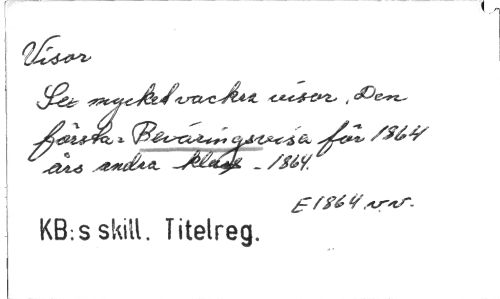 Visor
Sex mycket vackra visor. Den
första: Beväringsvisa för 1864
års andra klass - 1864.
E 1864 v.v.
KB:s skill. Titelreg.